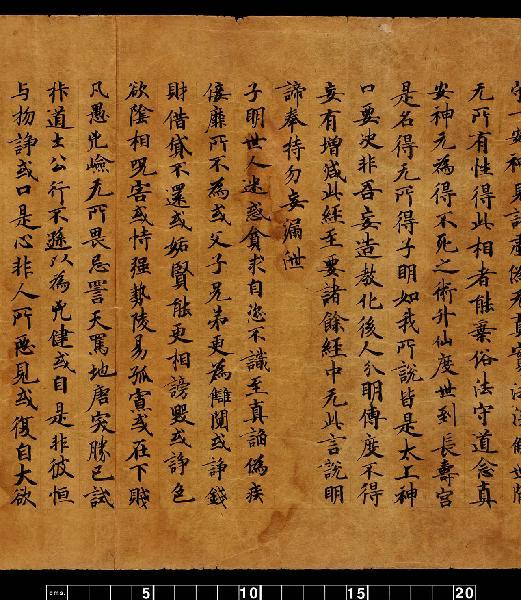 守一安神見諸
无所有性得此相者能棄俗法守道念真
安神无為得不死之術升仙度世到長壽宮
是名得无所得子明如我所說皆是太上神
口要決非吾妄造教化後人分明傳度不得
妄有增減此經至要諸餘經中无此言說明
諦奉持勿妄漏泄
子明世人迷惑貪求自恣不識至真諂偽疾
佞靡所不為或父子兄弟更為讎鬪或諍錢
財借貸不還或妬賢能更相謗毀或諍色
欲陰相呪害或恃強勢陵易孤寡或在下賤
凡愚兇嶮无所畏忌詈天罵地唐突勝己試
非道士公行不遜以為兇健或自是非彼恒
与物諍或口是心非人所惡見或復自大欲
cms. 5 10 15 20